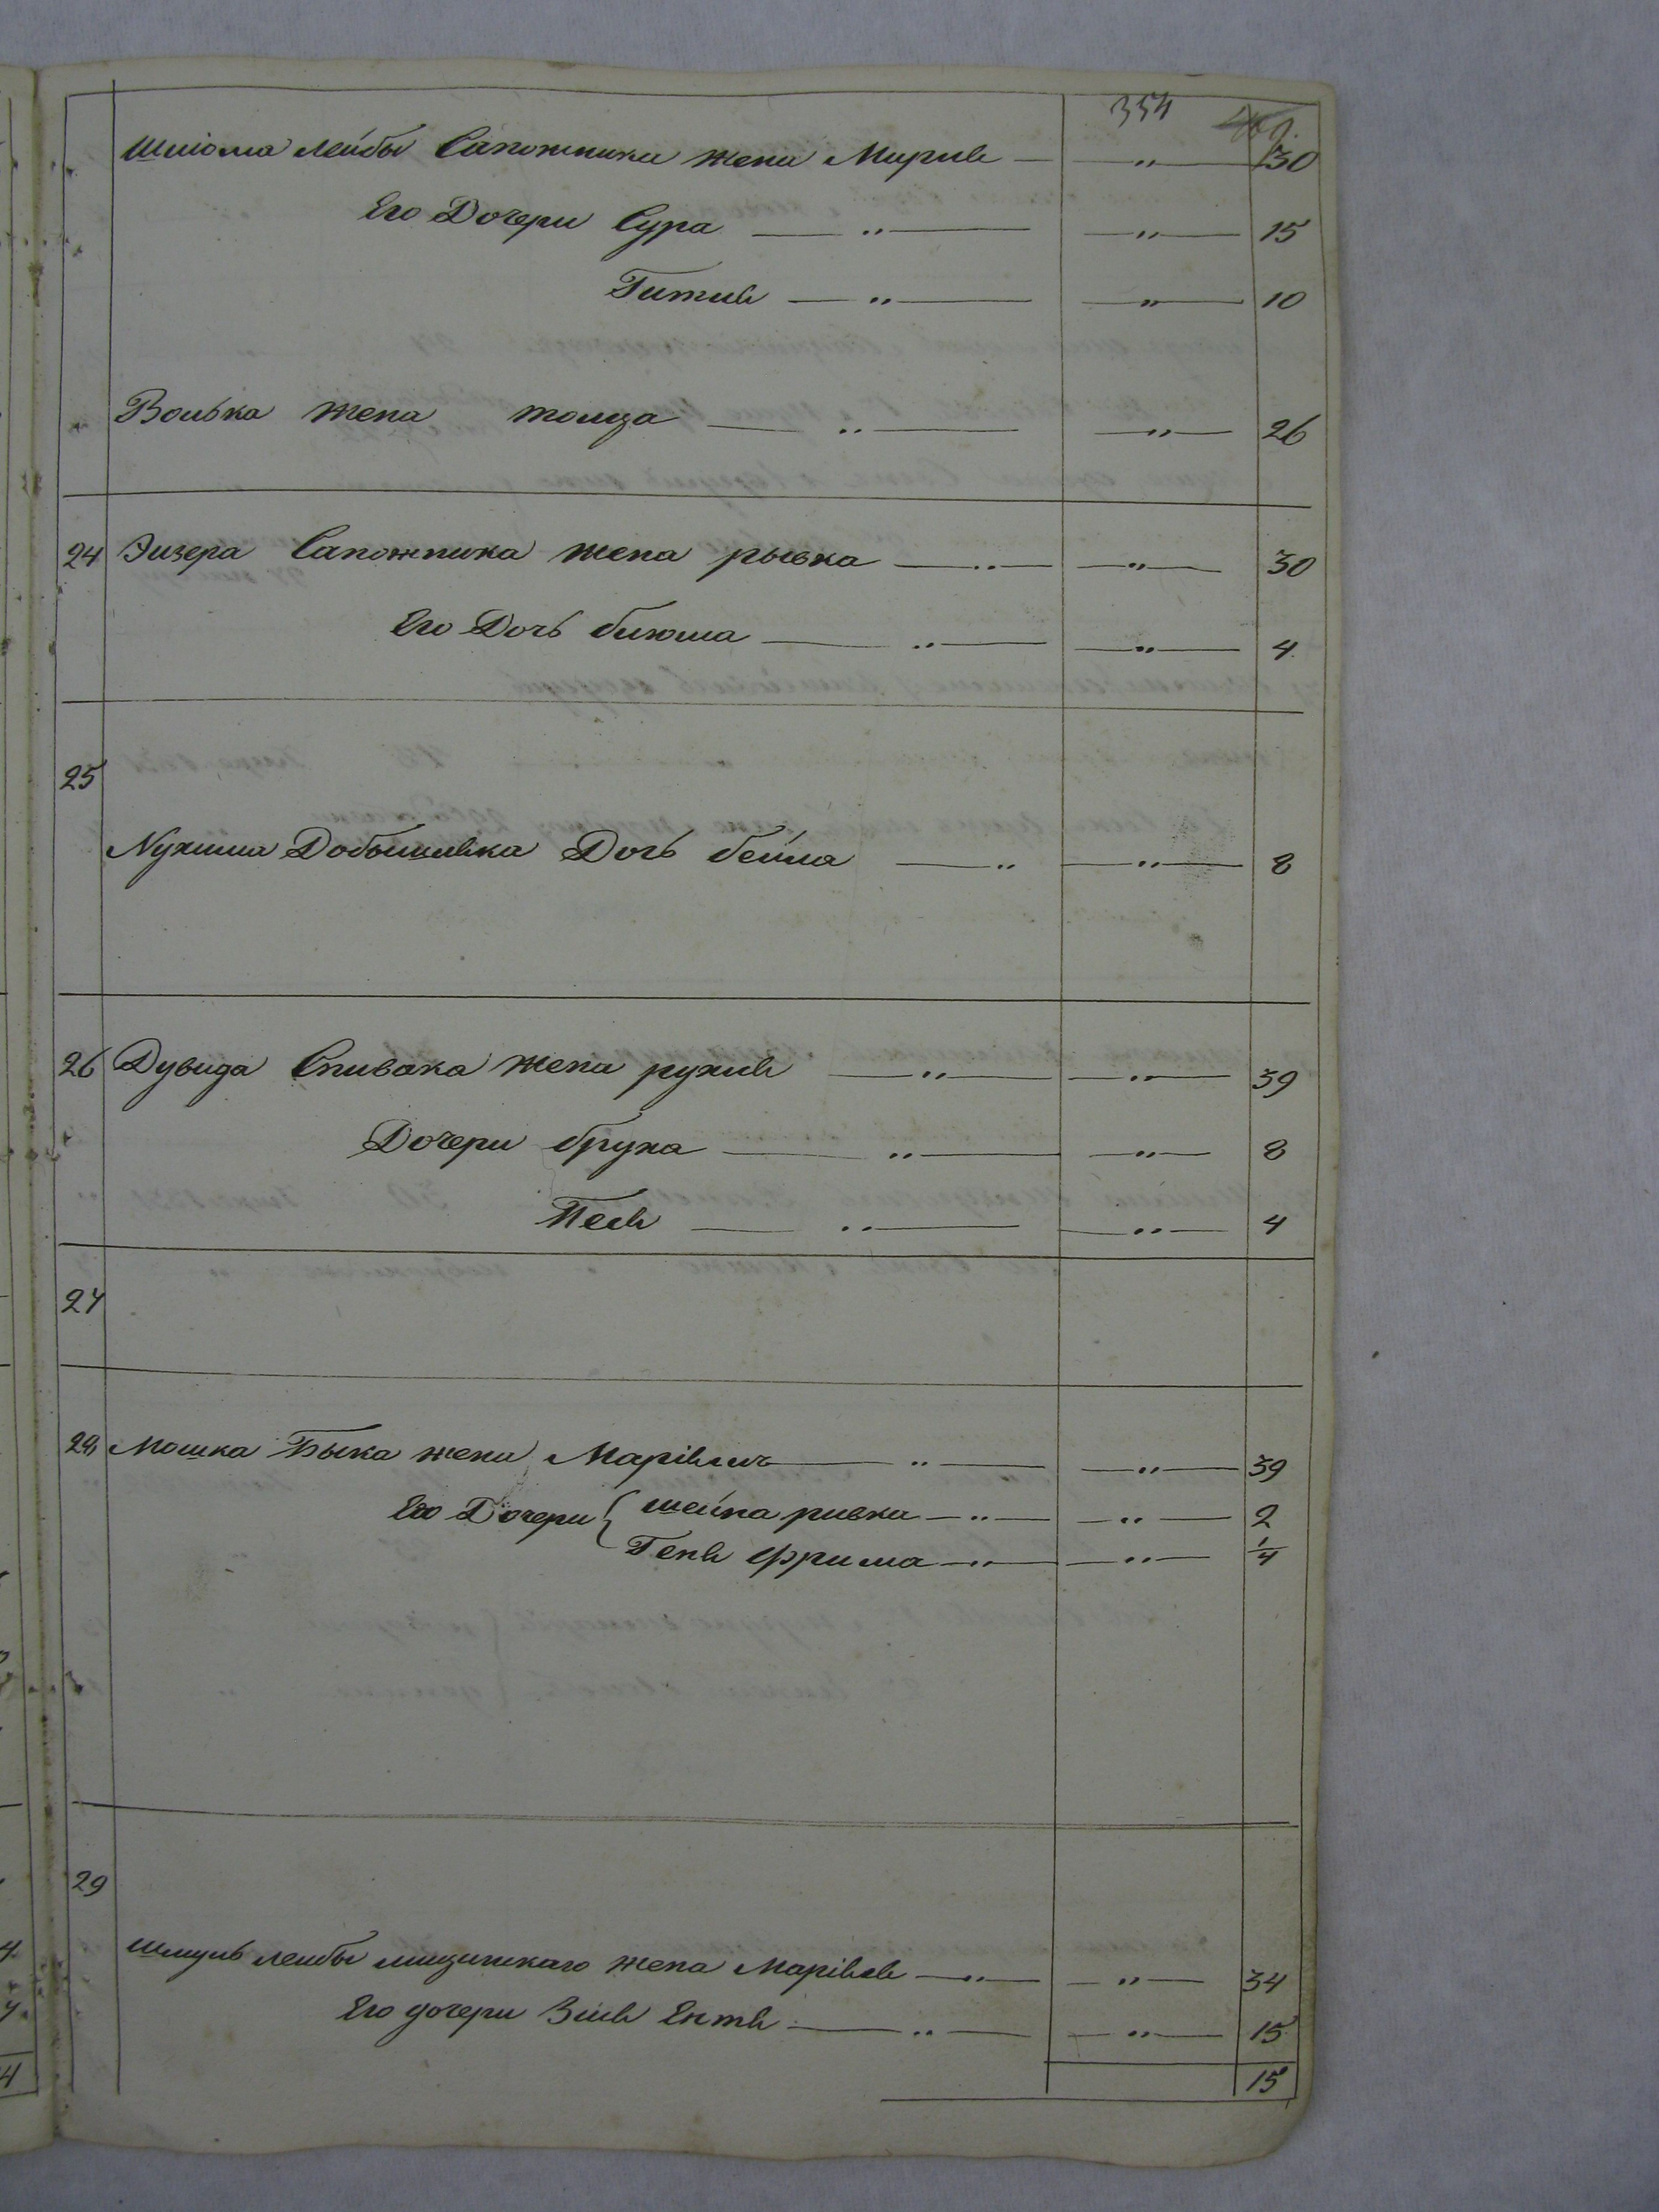 354
Шліома Лейбы Сапожника жена Мирлѣ — „ — 30
Его Дочери Сура — „ — „ — 15
Гитлѣ — „ — „ — 10
Волька жена толца — „ — „ — 26
24 Эизера Сапожника жена рывка — „ — „ — 30
Его Дочь блюма — „ — „ — 4
25
Нухима Дочь бейла — „ — „ — 8
26 Дувида Спивака жена рухлѣ — „ — „ — 39
Дочери бруха — „ — „ — 8
Песѣ — „ — „ — 4
27
28 Мошка Быка жена — „ — „ — 39
Его Дочери { шейна ривка — „ — „ — 2
Генѣ фрима — „ — „ — 1/4
29
Шмуль лейбы жена Маріѣсѣ — „ — „ — 34
Его дочери Зислѣ Ентѣ — „ — „ — 15
15